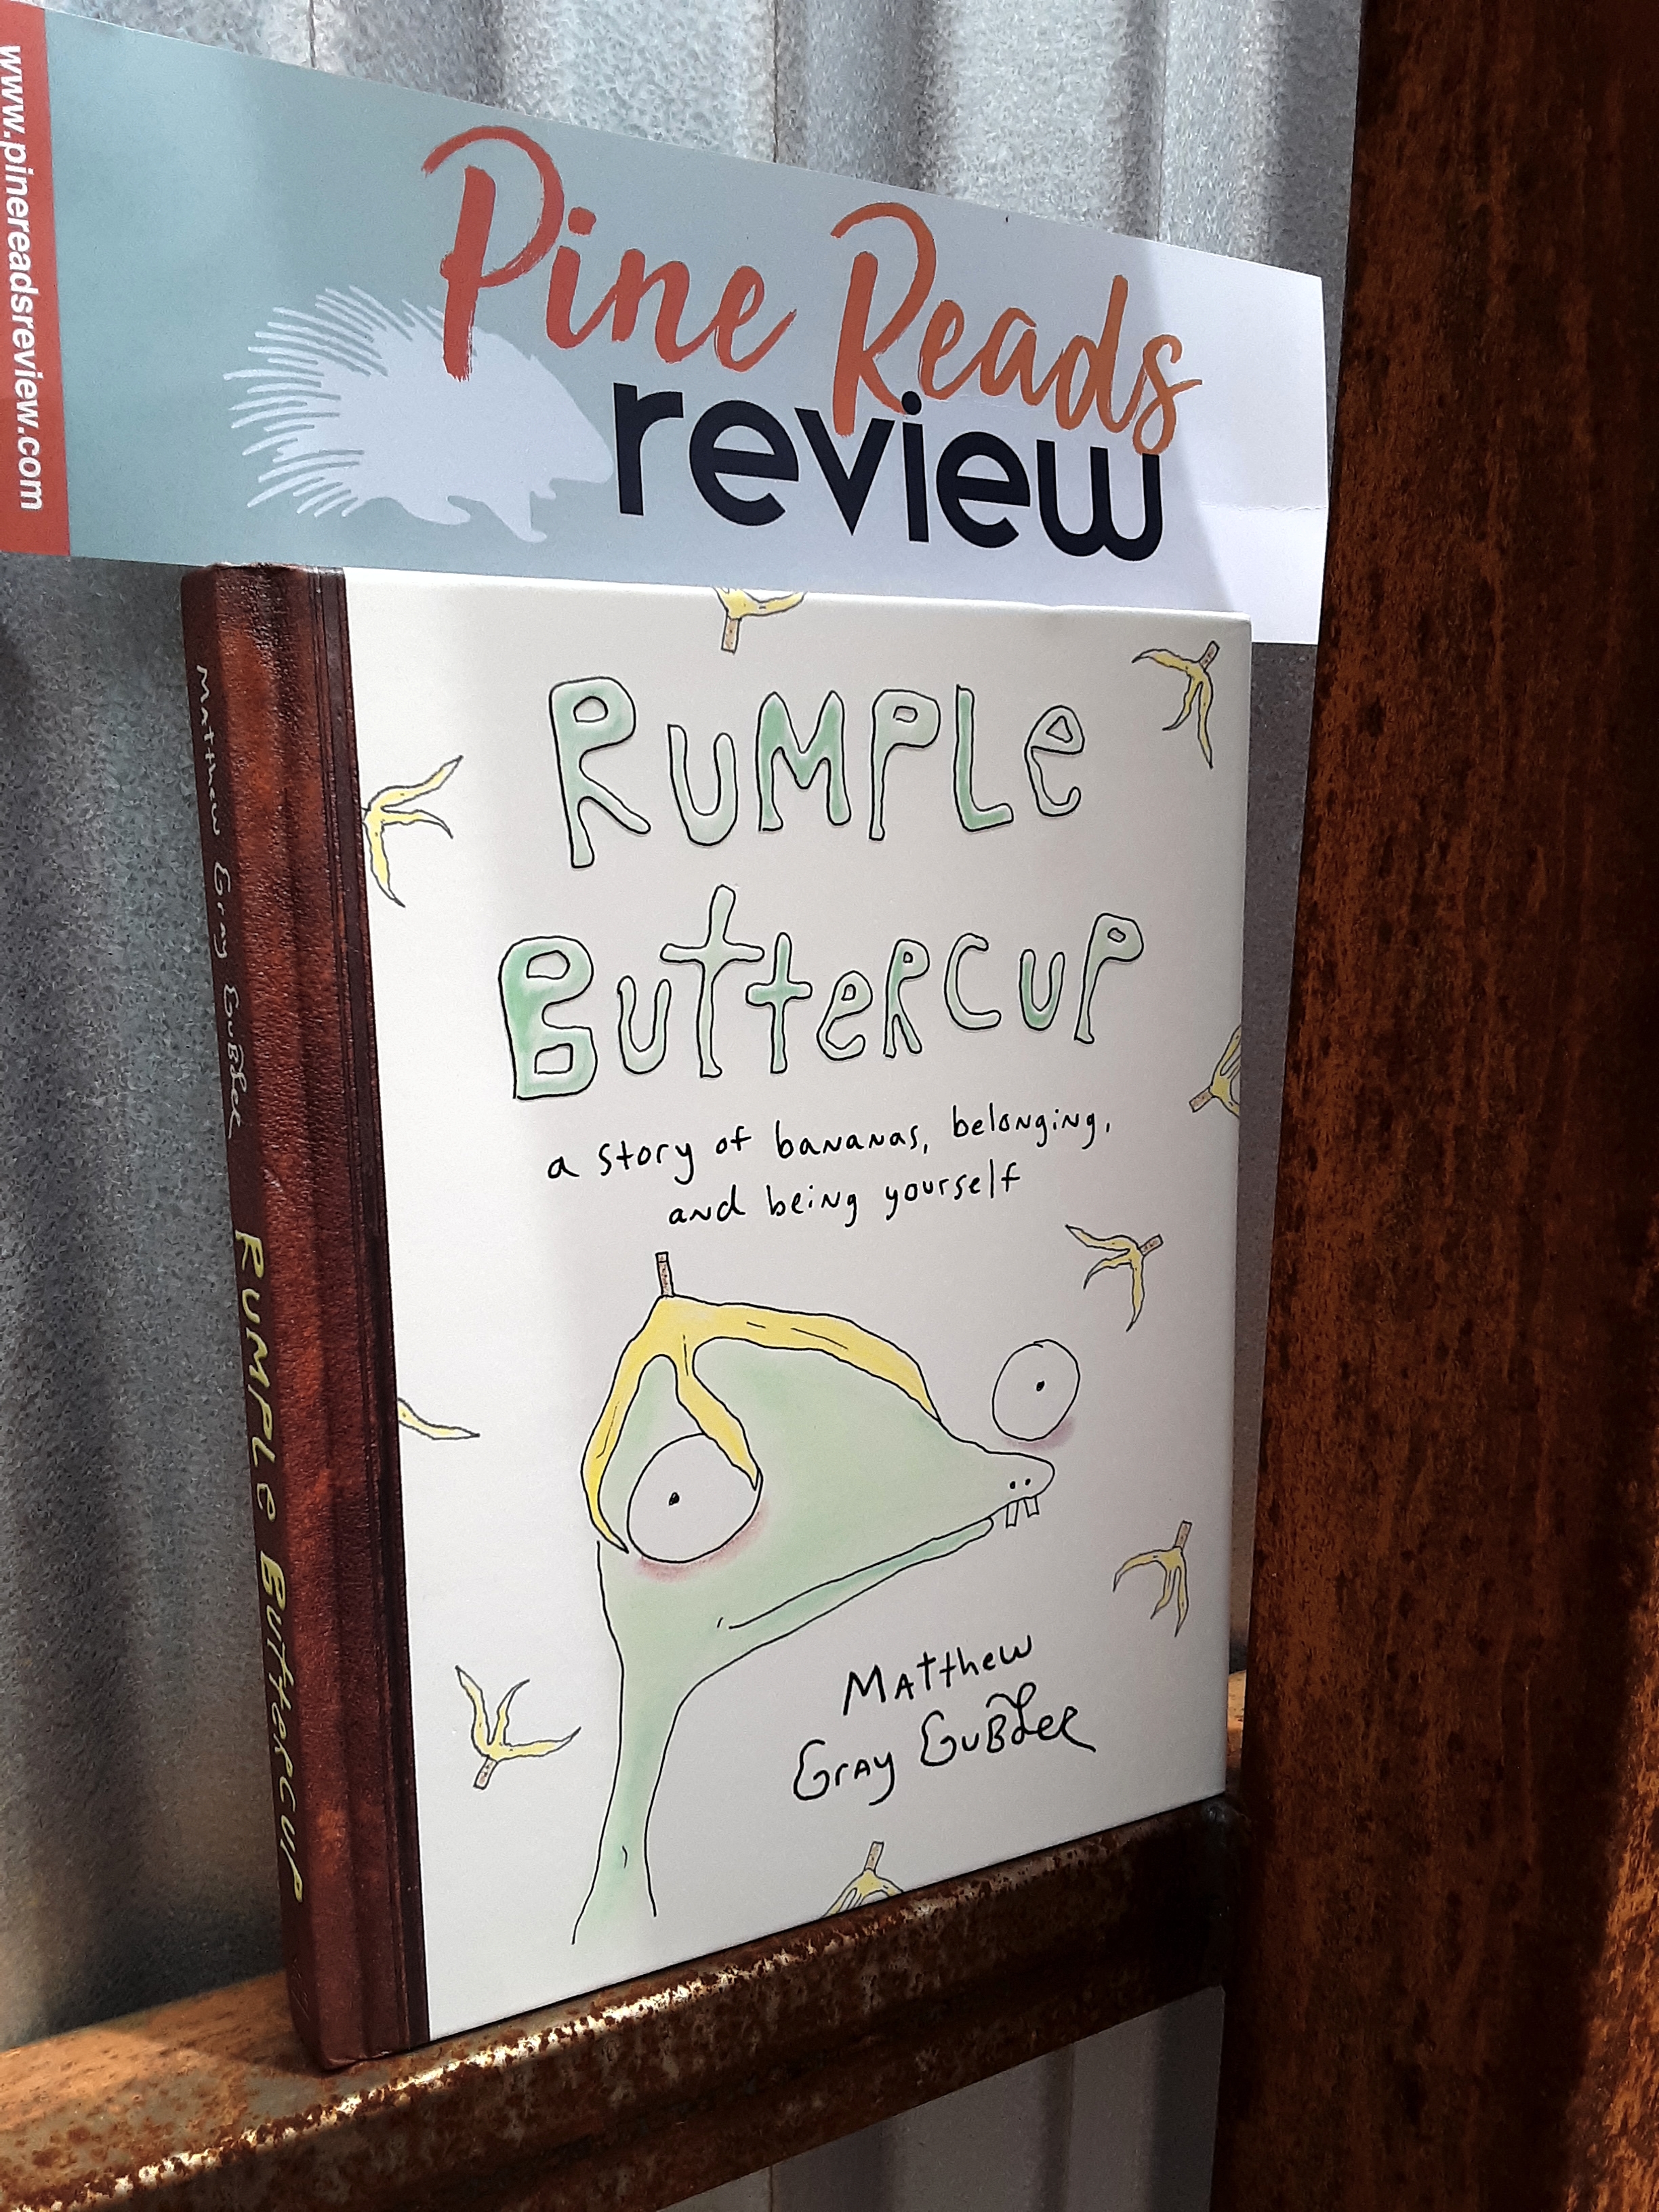 www.pinereadsreview.com
Pine Reads
review
RUMPLE
BUTTERCUP
a story of bananas, belonging,
and being yourself
Matthew
Gray Gubler
Matthew Gray Gubler
RUMPLE BUTTERCUP